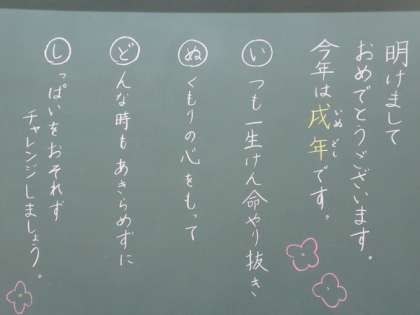 明けまして
おめでとうございます。
今年は戌年です。
いぬどし
いつも一生けん命やり抜き
ぬくもりの心をもって
どんな時もあきらめずに
しっぱいをおそれず
チャレンジしましょう。